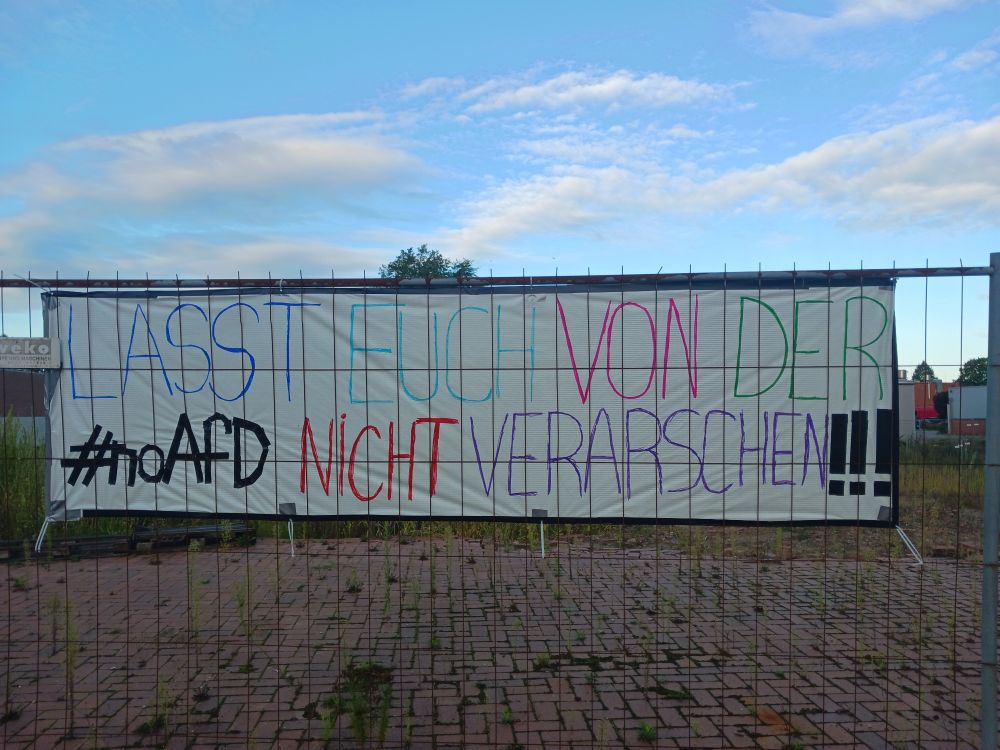 LASST EUCH VON DER
#noAfD NiCHT VERARSCHEN!!!
veko